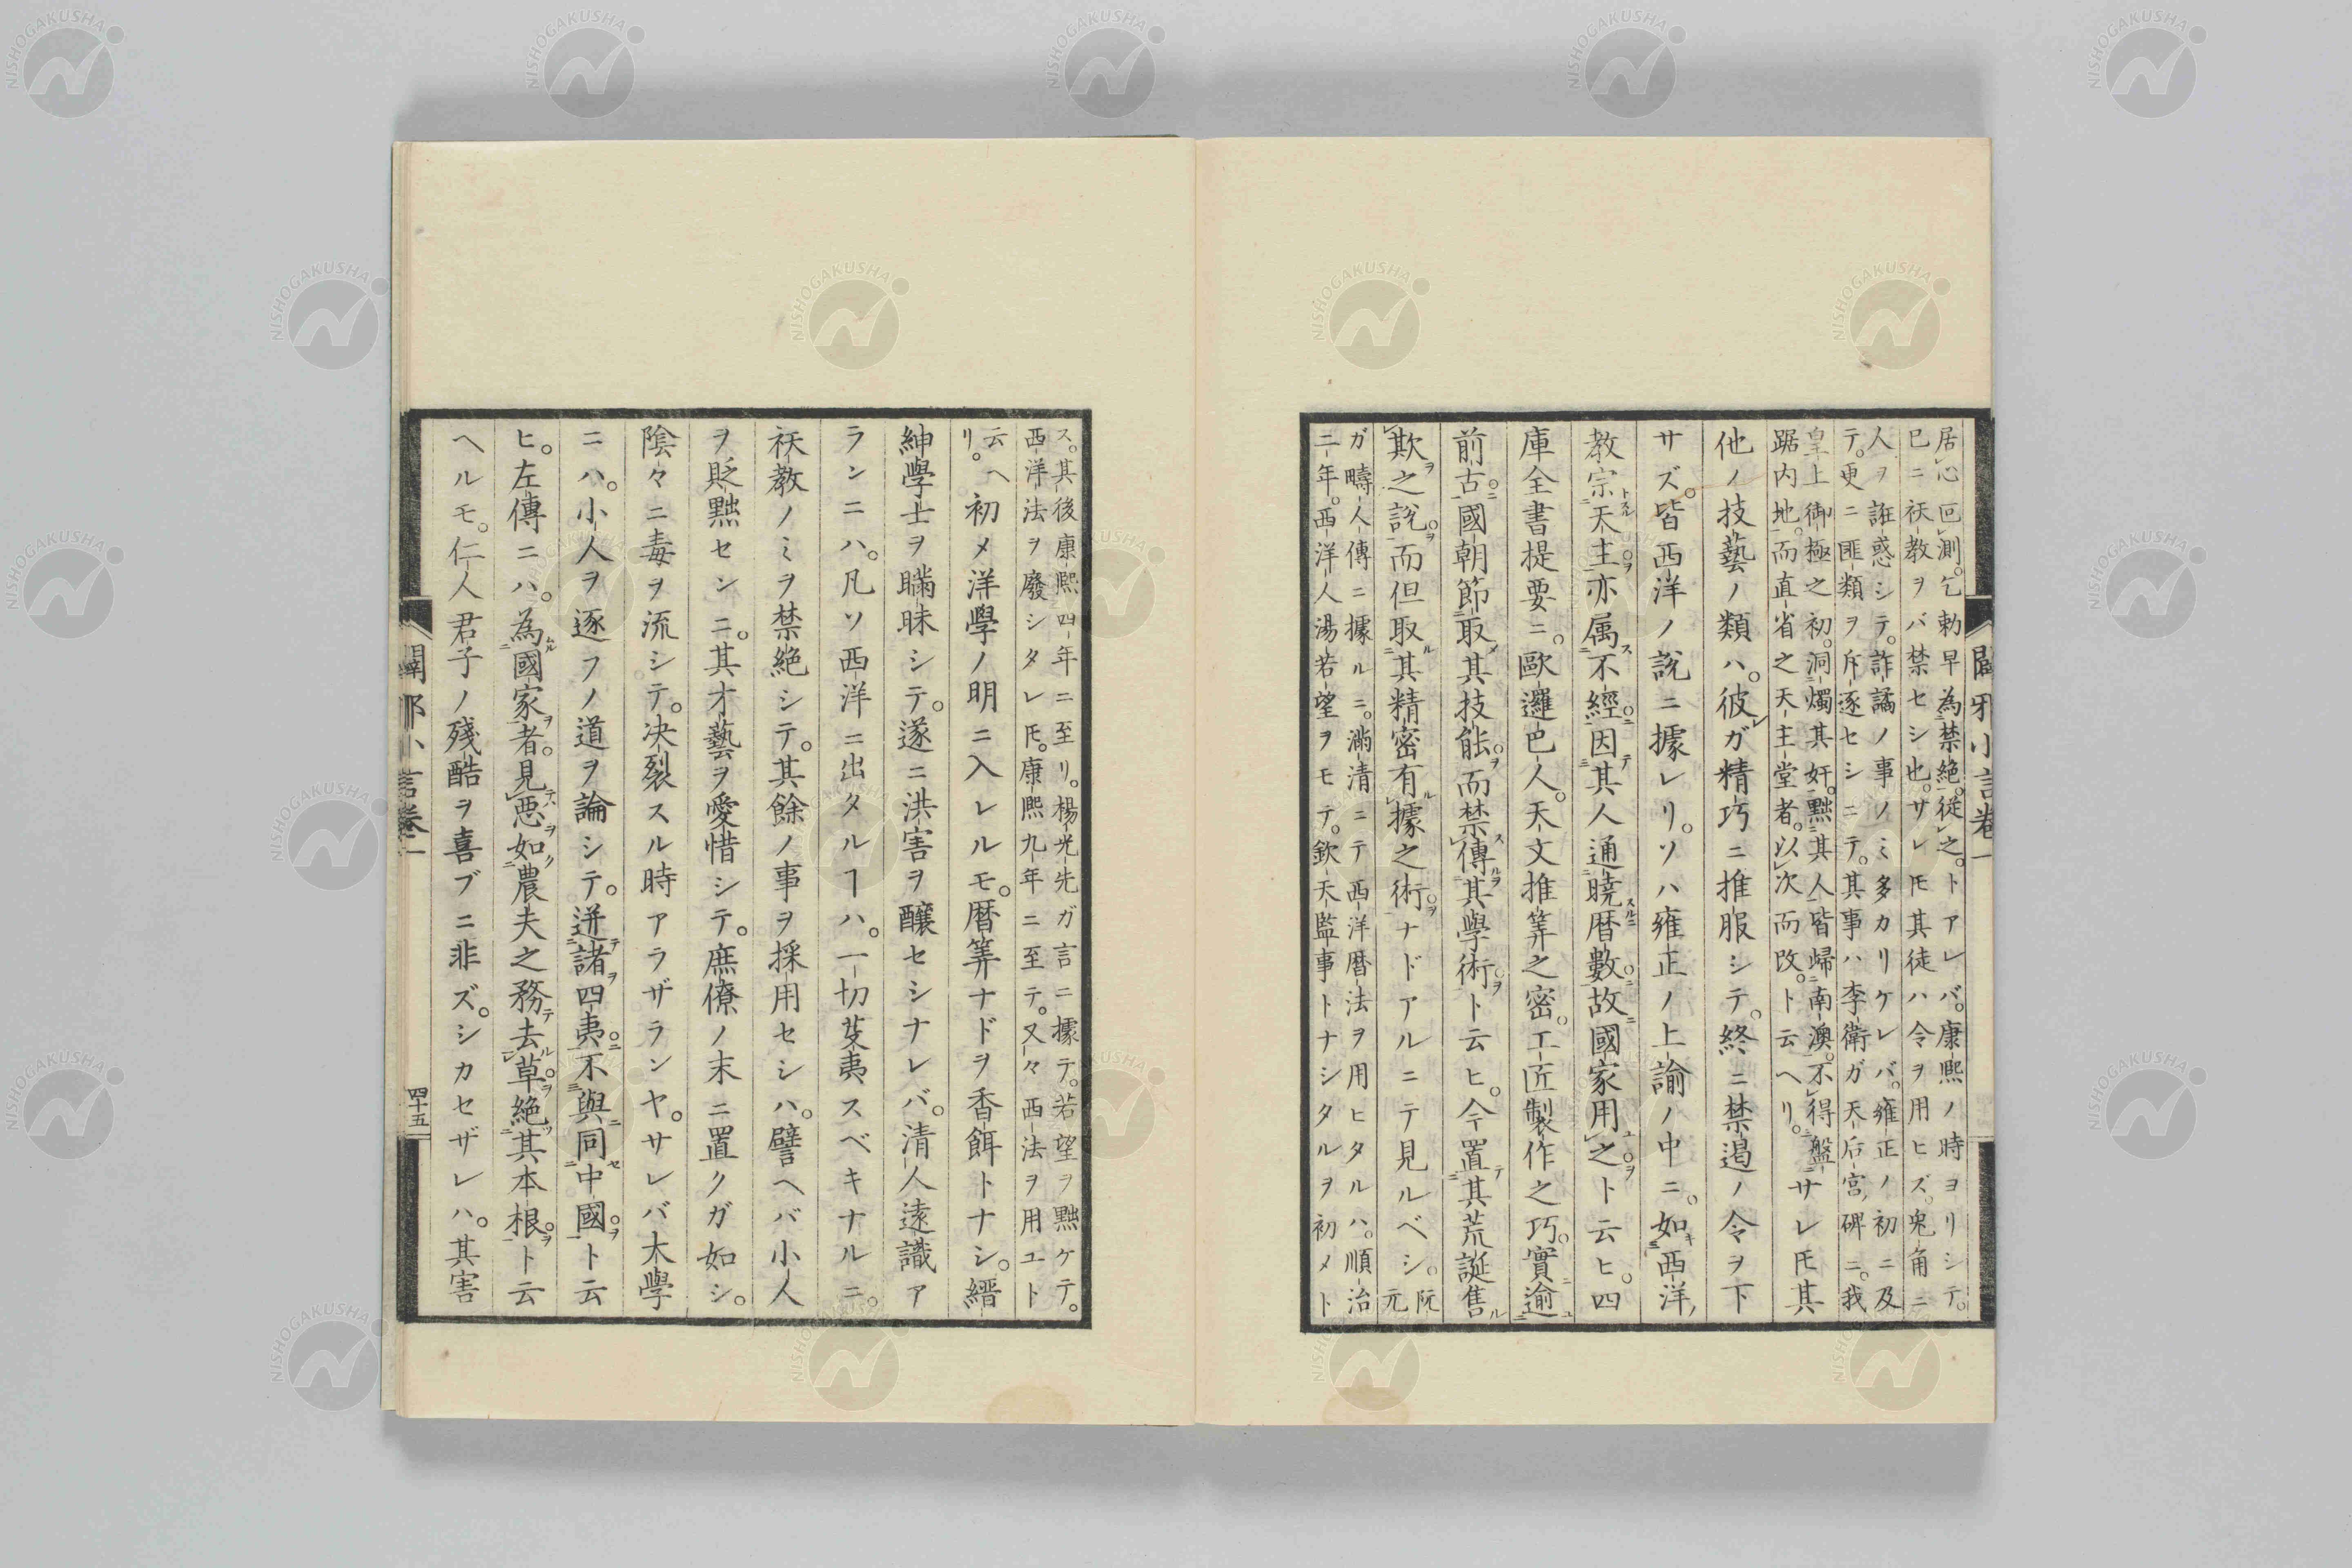 居心叵測。乞勅早為禁絶。従之。トアレバ。康熙ノ時ヨリシテ。
巳ニ祅教ヲバ禁セシ也。サレ𪜈其徒ハ令ヲ用ヒズ。兎角ニ
人ヲ誑惑シテ。詐譎ノ事ノミ多カリケレバ。雍正ノ初ニ及
テ。更ニ匪類ヲ斥逐セシニテ。其事ハ李衛ガ天后宮碑ニ。我
皇上御極之初。洞燭其奸。黜其人皆歸南澳。不得盤
踞内地。而直省之天主堂者。以次而改。ト云ヘリ。
サレ𪜈其
他ノ技藝ノ類ハ。彼レガ精巧ニ推服シテ。終ニ禁遏ノ令ヲ下
サズ。皆西洋ノ說ニ據レリ。ソハ雍正ノ上諭ノ中ニ。如キ西洋ノ
教宗トスル天主ヲ亦属ス不經ニ因テ其人通曉スルニ曆數ニ故ニ國家用ユ之ヲト云ヒ。四
庫全書提要ニ。歐邏巴人。天文推筭之密。工匠製作之巧。實ニ逾ユ
前古ニ國朝節取メ其技能ヲ而禁ス傳ルヲ其學術ヲト云ヒ。今置テ其荒誕售ル
欺ヲ之說ヲ而但取ル其精密有ル據之術ヲナドアルニテ見ルベシ。
阮元
ガ疇人傳ニ據ルニ。滿清ニテ西洋曆法ヲ用ヒタルハ。順治
二年。西洋人湯若望ヲモテ。欽天監事トナシタルヲ初メト
闢邪小言卷一
ス。其後康熙四年ニ至リ。楊光先ガ言ニ據テ。若望ヲ黜ケテ。
西洋法ヲ廢シタレ𪜈。康熙九年ニ至テ。又々西法ヲ用ユト
云ヘリ。
初メ洋學ノ明ニ入レルモ。曆筭ナドヲ香餌トナシ。縉
紳學士ヲ瞞昧シテ。遂ニ洪害ヲ釀セシナレバ。清人遠識ア
ランニハ。凡ソ西洋ニ出タルヿハ。一切芟夷スベキナルニ。
祅教ノミヲ禁絶シテ。其餘ノ事ヲ採用セシハ。譬ヘバ小人
ヲ貶黜セシニ。其才藝ヲ愛惜シテ。庶僚ノ末ニ置クガ如シ。
陰々ニ毒ヲ流シテ。決裂スル時アラザランヤ。サレバ大學
ニハ。小人ヲ逐フノ道ヲ論シテ。迸テ諸ヲ四夷ニ不與ニ同セ中國ヲト云
ヒ。左傳ニハ。為ムル國家ヲ者。見テハ惡ヲ如ク農夫之務テ去ル草ヲ絶ツ其本根ヲト云
ヘルモ。仁人君子ノ殘酷ヲ喜ブニ非ズ。シカセザレハ。其害
闢邪小言卷一
四十五